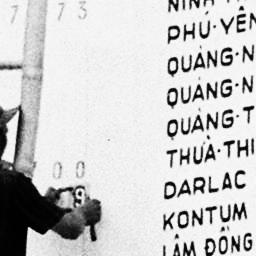 7 73
00
9
PHÚ·YÊN
QUẢNG·N
QUẢNG·N
QUẢNG·T
THUÀ·THI
DARLAC
KONTUM
LÂM ĐỒNG